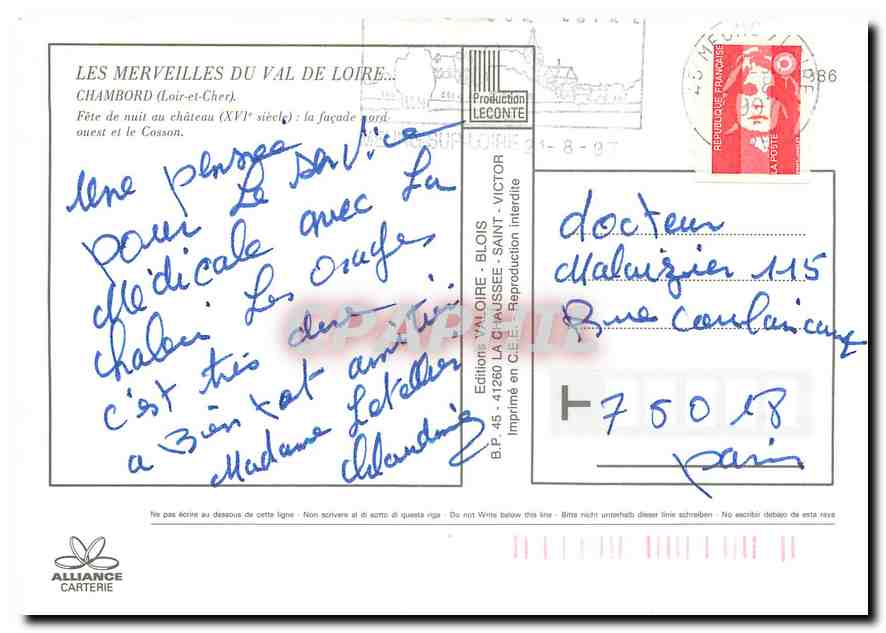 LES MERVEILLES DU VAL DE LOIRE...
CHAMBORD (Loir-et-Cher).
Fête de nuit au château (XVIe siècle) : la façade nord-
ouest et le Cosson.
Production
LECONTE
MEUNG-SUR-LOIRE 21-8-97
45 MEUNG / LOIRE
RÉPUBLIQUE FRANÇAISE
LA POSTE
986
une pensée
pour Le service
Médicale avec La
chaleur Les orages
c'est très dure
a Bientot amitié
Madame Letellier
Claudine
Editions VALOIRE - BLOIS
B.P. 45 - 41260 LA CHAUSSEE - SAINT - VICTOR
Imprimé en C.E.E. - Reproduction interdite
docteur
Malaizier 115
Rue Caulaincourt
75018
paris
CPAPHIL
Ne pas écrire au dessous de cette ligne - Non scrivere al di sotto di questa riga - Do not Write below this line - Bitte nicht unterhalb dieser linie schreiben - No escribir debajo de esta raya
ALLIANCE
CARTERIE